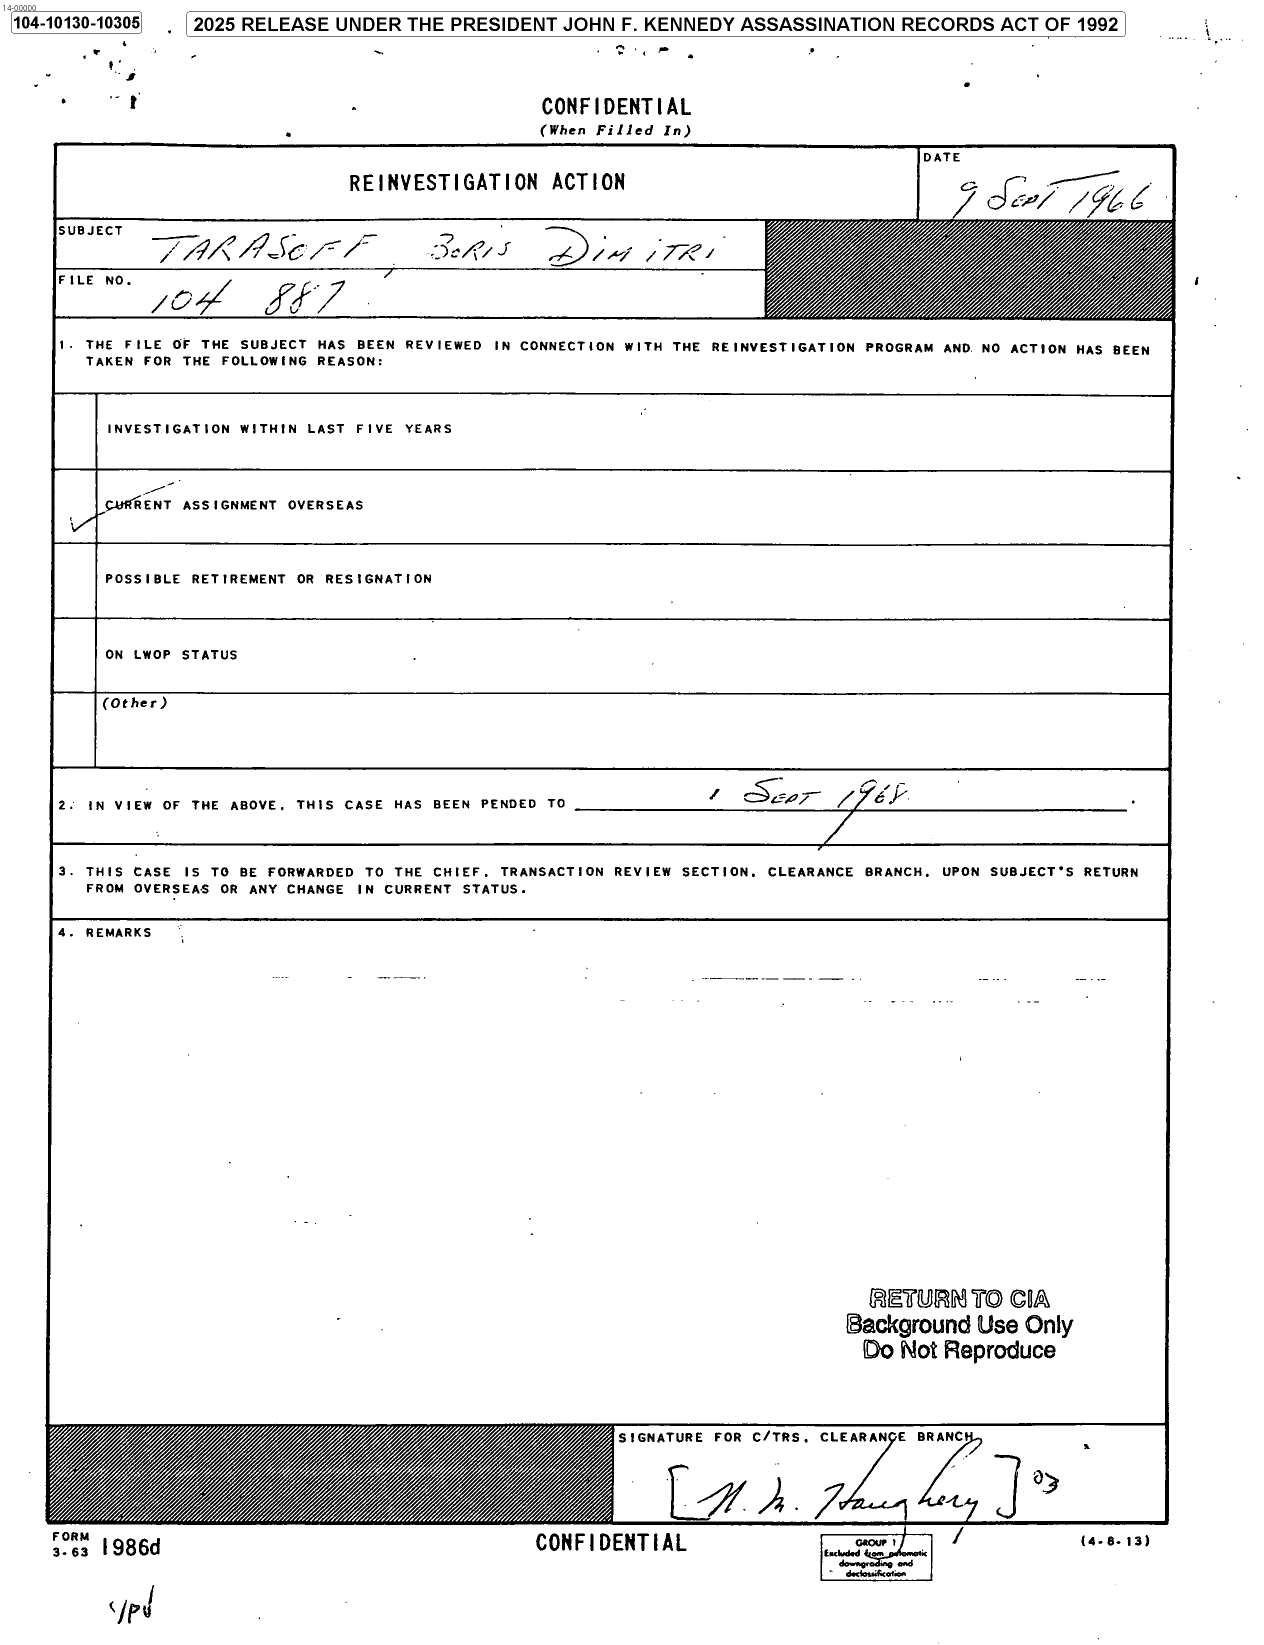 14-00000
104-10130-10305
2025 RELEASE UNDER THE PRESIDENT JOHN F. KENNEDY ASSASSINATION RECORDS ACT OF 1992
CONFIDENTIAL
(When Filled In)
REINVESTIGATION ACTION
DATE
9 SEPT 1966
SUBJECT
TARASOFF, BORIS DIMITRI
FILE NO.
104 887
1. THE FILE OF THE SUBJECT HAS BEEN REVIEWED IN CONNECTION WITH THE REINVESTIGATION PROGRAM AND NO ACTION HAS BEEN
TAKEN FOR THE FOLLOWING REASON:
INVESTIGATION WITHIN LAST FIVE YEARS
CURRENT ASSIGNMENT OVERSEAS
POSSIBLE RETIREMENT OR RESIGNATION
ON LWOP STATUS
(Other)
2. IN VIEW OF THE ABOVE, THIS CASE HAS BEEN PENDED TO 1 SEPT 1968.
3. THIS CASE IS TO BE FORWARDED TO THE CHIEF, TRANSACTION REVIEW SECTION, CLEARANCE BRANCH, UPON SUBJECT'S RETURN
FROM OVERSEAS OR ANY CHANGE IN CURRENT STATUS.
4. REMARKS
RETURN TO CIA
Background Use Only
Do Not Reproduce
SIGNATURE FOR C/TRS, CLEARANCE BRANCH
[N. M. Haughery] 03
FORM
3-63 1986d
CONFIDENTIAL
GROUP 1
Excluded from automatic
downgrading and
declassification
(4-8-13)